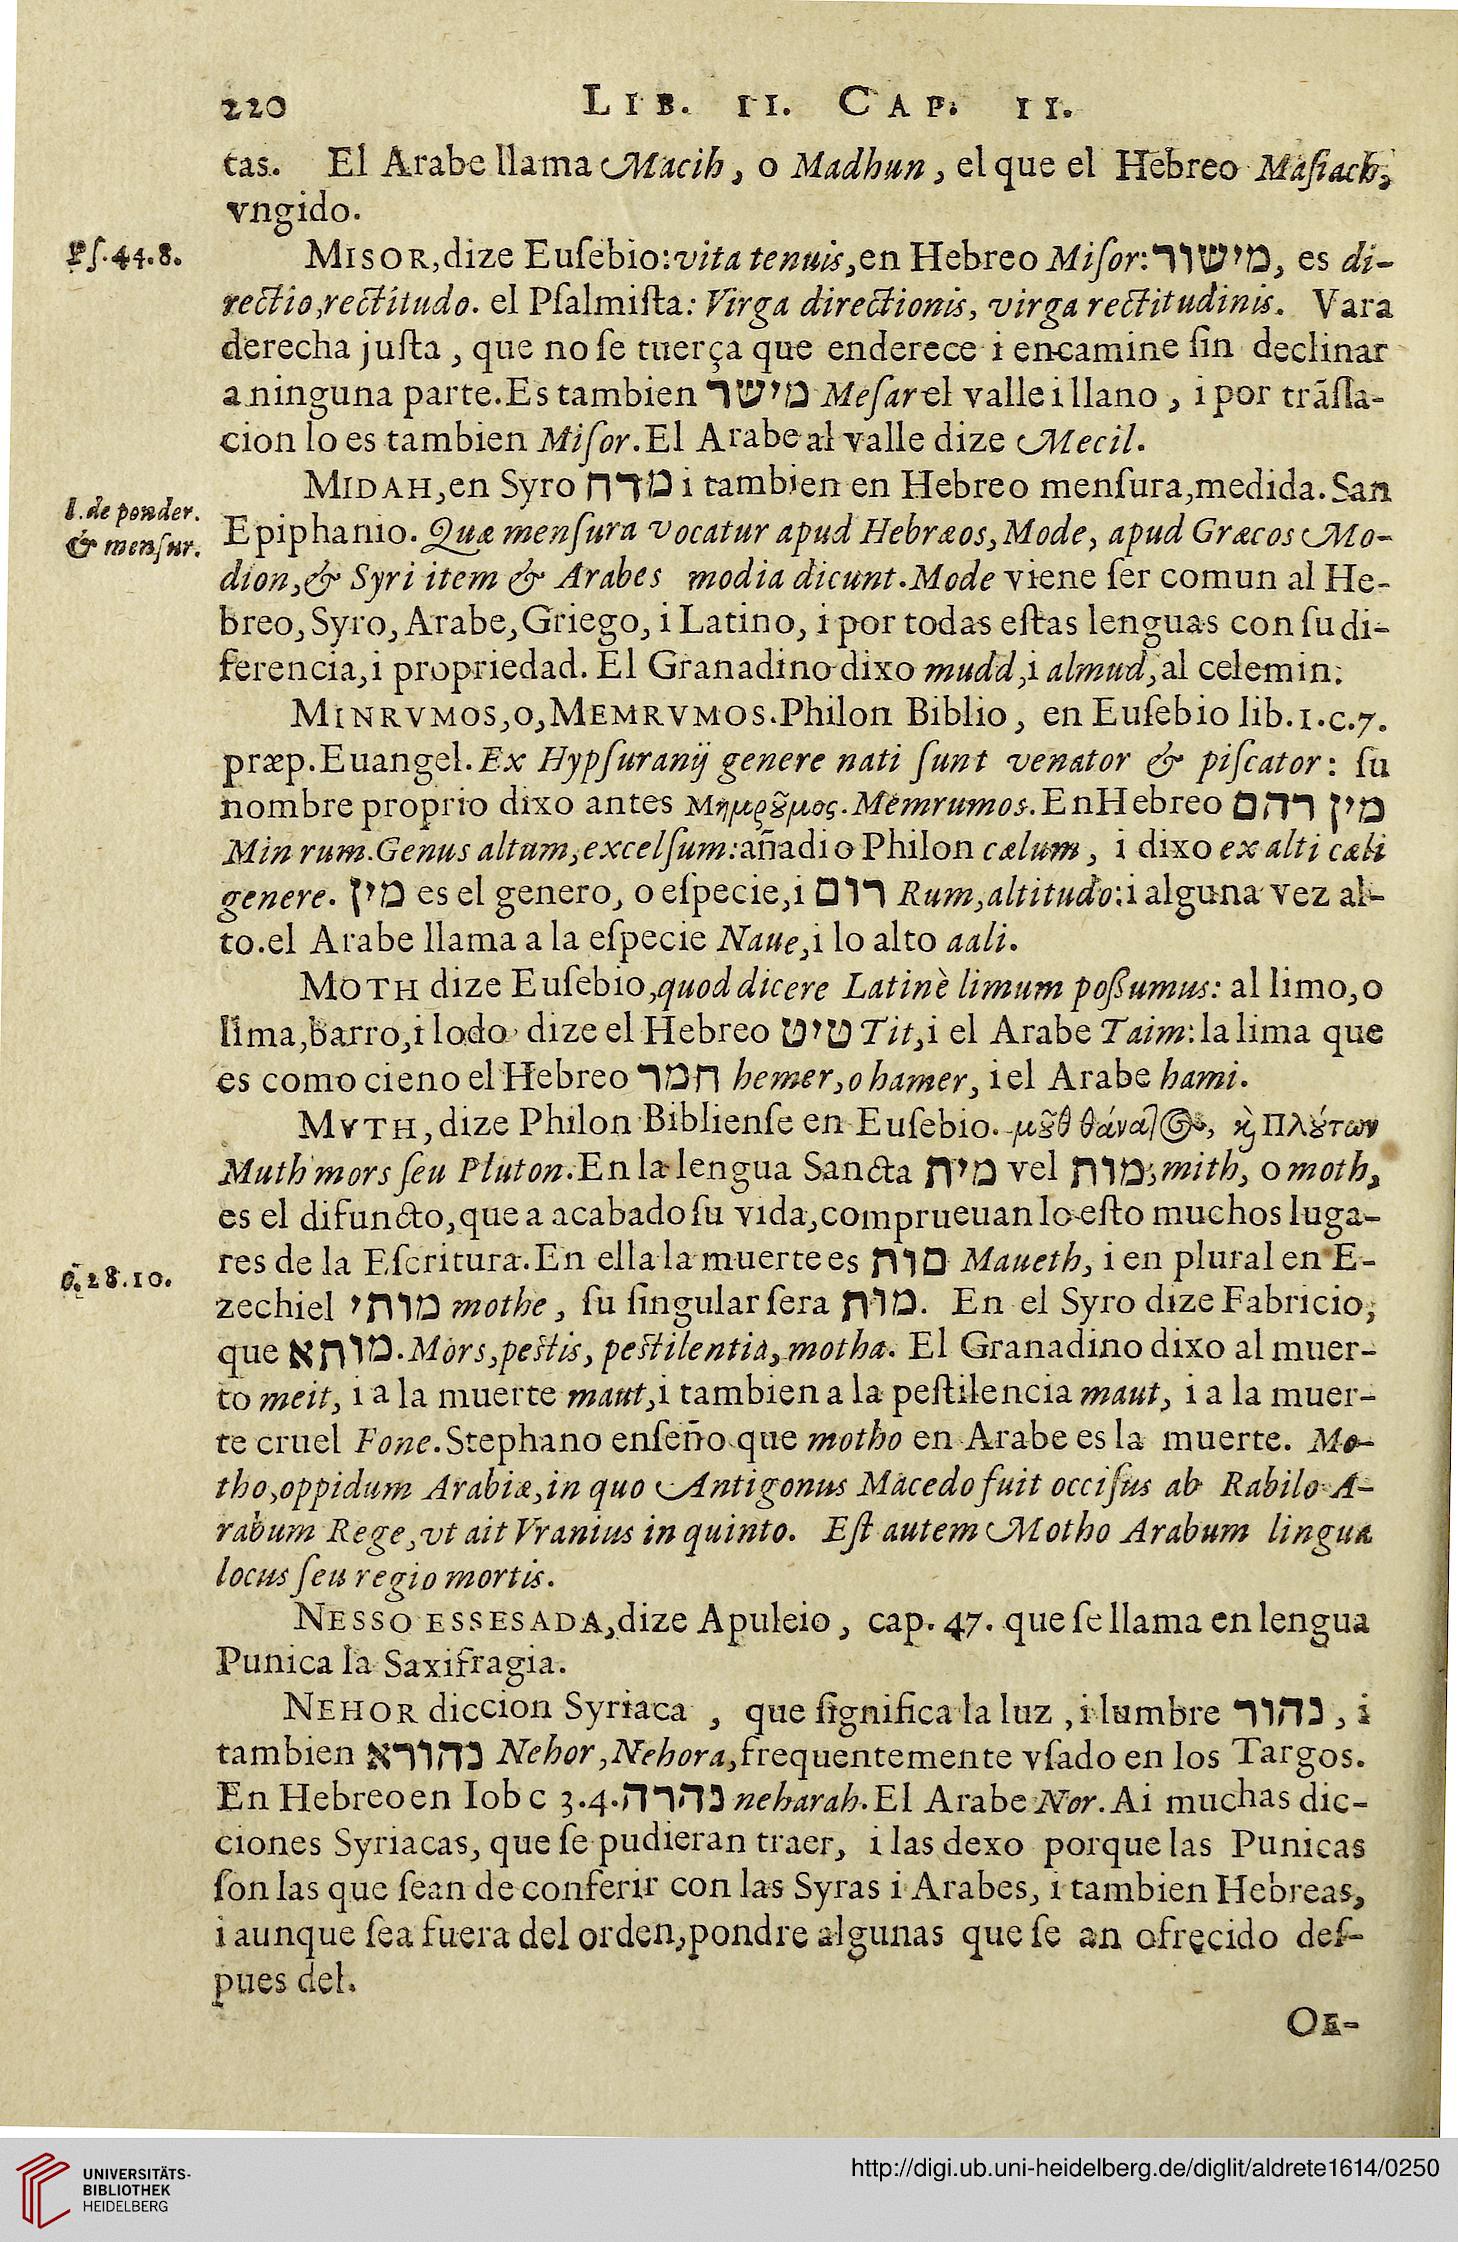 220 LIB. II. CAP. II.
tas. El Arabe llama Macih, o Madhun, el que el Hebreo Maſiach,
vngido.
Pſ.44.8.
MISOR,dize Euſebio:vita tenuis,en Hebreo Miſor:מישור, es di-
rectio,rectitudo. el Pſalmiſta: Virga directionis, virga rectitudinis. Vara
derecha juſta, que no ſe tuerça que enderece i encamine ſin declinar
a ninguna parte.Es tambien מישר Meſar el valle i llano, i por trãſla-
cion lo es tambien Miſor.El Arabe al valle dize Mecil.
l.de ponder.
& menſur.
MIDAH,en Syro מדח i tambien en Hebreo menſura,medida.San
Epiphanio. Quæ menſura vocatur apud Hebræos,Mode, apud Græcos Mo-
dion,& Syri item & Arabes modia dicunt.Mode viene ſer comun al He-
breo,Syro,Arabe,Griego, i Latino, i por todas eſtas lenguas con ſu di-
ferencia,i propriedad. El Granadino dixo mudd,i almud,al celemin.
MINRVMOS,O,MEMRVMOS.Philon Biblio, en Euſebio lib.1.c.7.
præp.Euangel.Ex Hypſuranij genere nati ſunt venator & piſcator: ſu
nombre proprio dixo antes Μημρȣ͂μος.Memrumos.EnHebreo מין רהם
Min rum.Genus altum,excelſum:añadio Philon cælum, i dixo ex alti cæli
genere. מין es el genero, o eſpecie,i רום Rum,altitudo:i alguna vez al-
to.el Arabe llama a la eſpecie Naue,i lo alto aali.
MOTH dize Euſebio,quod dicere Latinè limum poßumus: al limo,o
lima,barro,i lodo dize el Hebreo טיט Tit,i el Arabe Taim:la lima que
es como cieno el Hebreo חמר hemer,o hamer, i el Arabe hami.
MVTH,dize Philon Biblienſe en Euſebio. μȣ͂θ θάνατος, ϗ̀ Πλȣ́των
Muth mors ſeu Pluton.En la lengua Sancta מית vel מות;mith, o moth,
es el difuncto,que a acabado ſu vida,comprueuan lo eſto muchos luga-
res de la Eſcritura.En ella la muerte es מות Maueth, i en plural en E-
c.28.10.
zechiel מותי mothe, ſu ſingular ſera מות. En el Syro dize Fabricio,
que מותא.Mors,peſtis, peſtilentia,motha. El Granadino dixo al muer-
to meit, i a la muerte maut,i tambien a la peſtilencia maut, i a la muer-
te cruel Fone.Stephano enſeño que motho en Arabe es la muerte. Mo-
tho,oppidum Arabiæ,in quo Antigonus Macedo fuit occiſus ab Rabilo A-
rabum Rege,vt ait Vranius in quinto. Eſt autem Motho Arabum lingua
locus ſeu regio mortis.
NESSO ESSESADA,dize Apuleio, cap.47. que ſe llama en lengua
Punica la Saxifragia.
NEHOR diccion Syriaca, que ſignifica la luz, i lumbre נהור, i
tambien נהורא Nehor,Nehora,frequentemente vſado en los Targos.
En Hebreo en Iob c 3.4.נהרה neharah.El Arabe Nor.Ai muchas dic-
ciones Syriacas, que ſe pudieran traer, i las dexo porque las Punicas
ſon las que ſean de conferir con las Syras i Arabes, i tambien Hebreas,
i aunque ſea fuera del orden,pondre algunas que ſe an ofrecido deſ-
pues del.
OE-
UNIVERSITÄTS-
BIBLIOTHEK
HEIDELBERG
http://digi.ub.uni-heidelberg.de/diglit/aldrete1614/0250